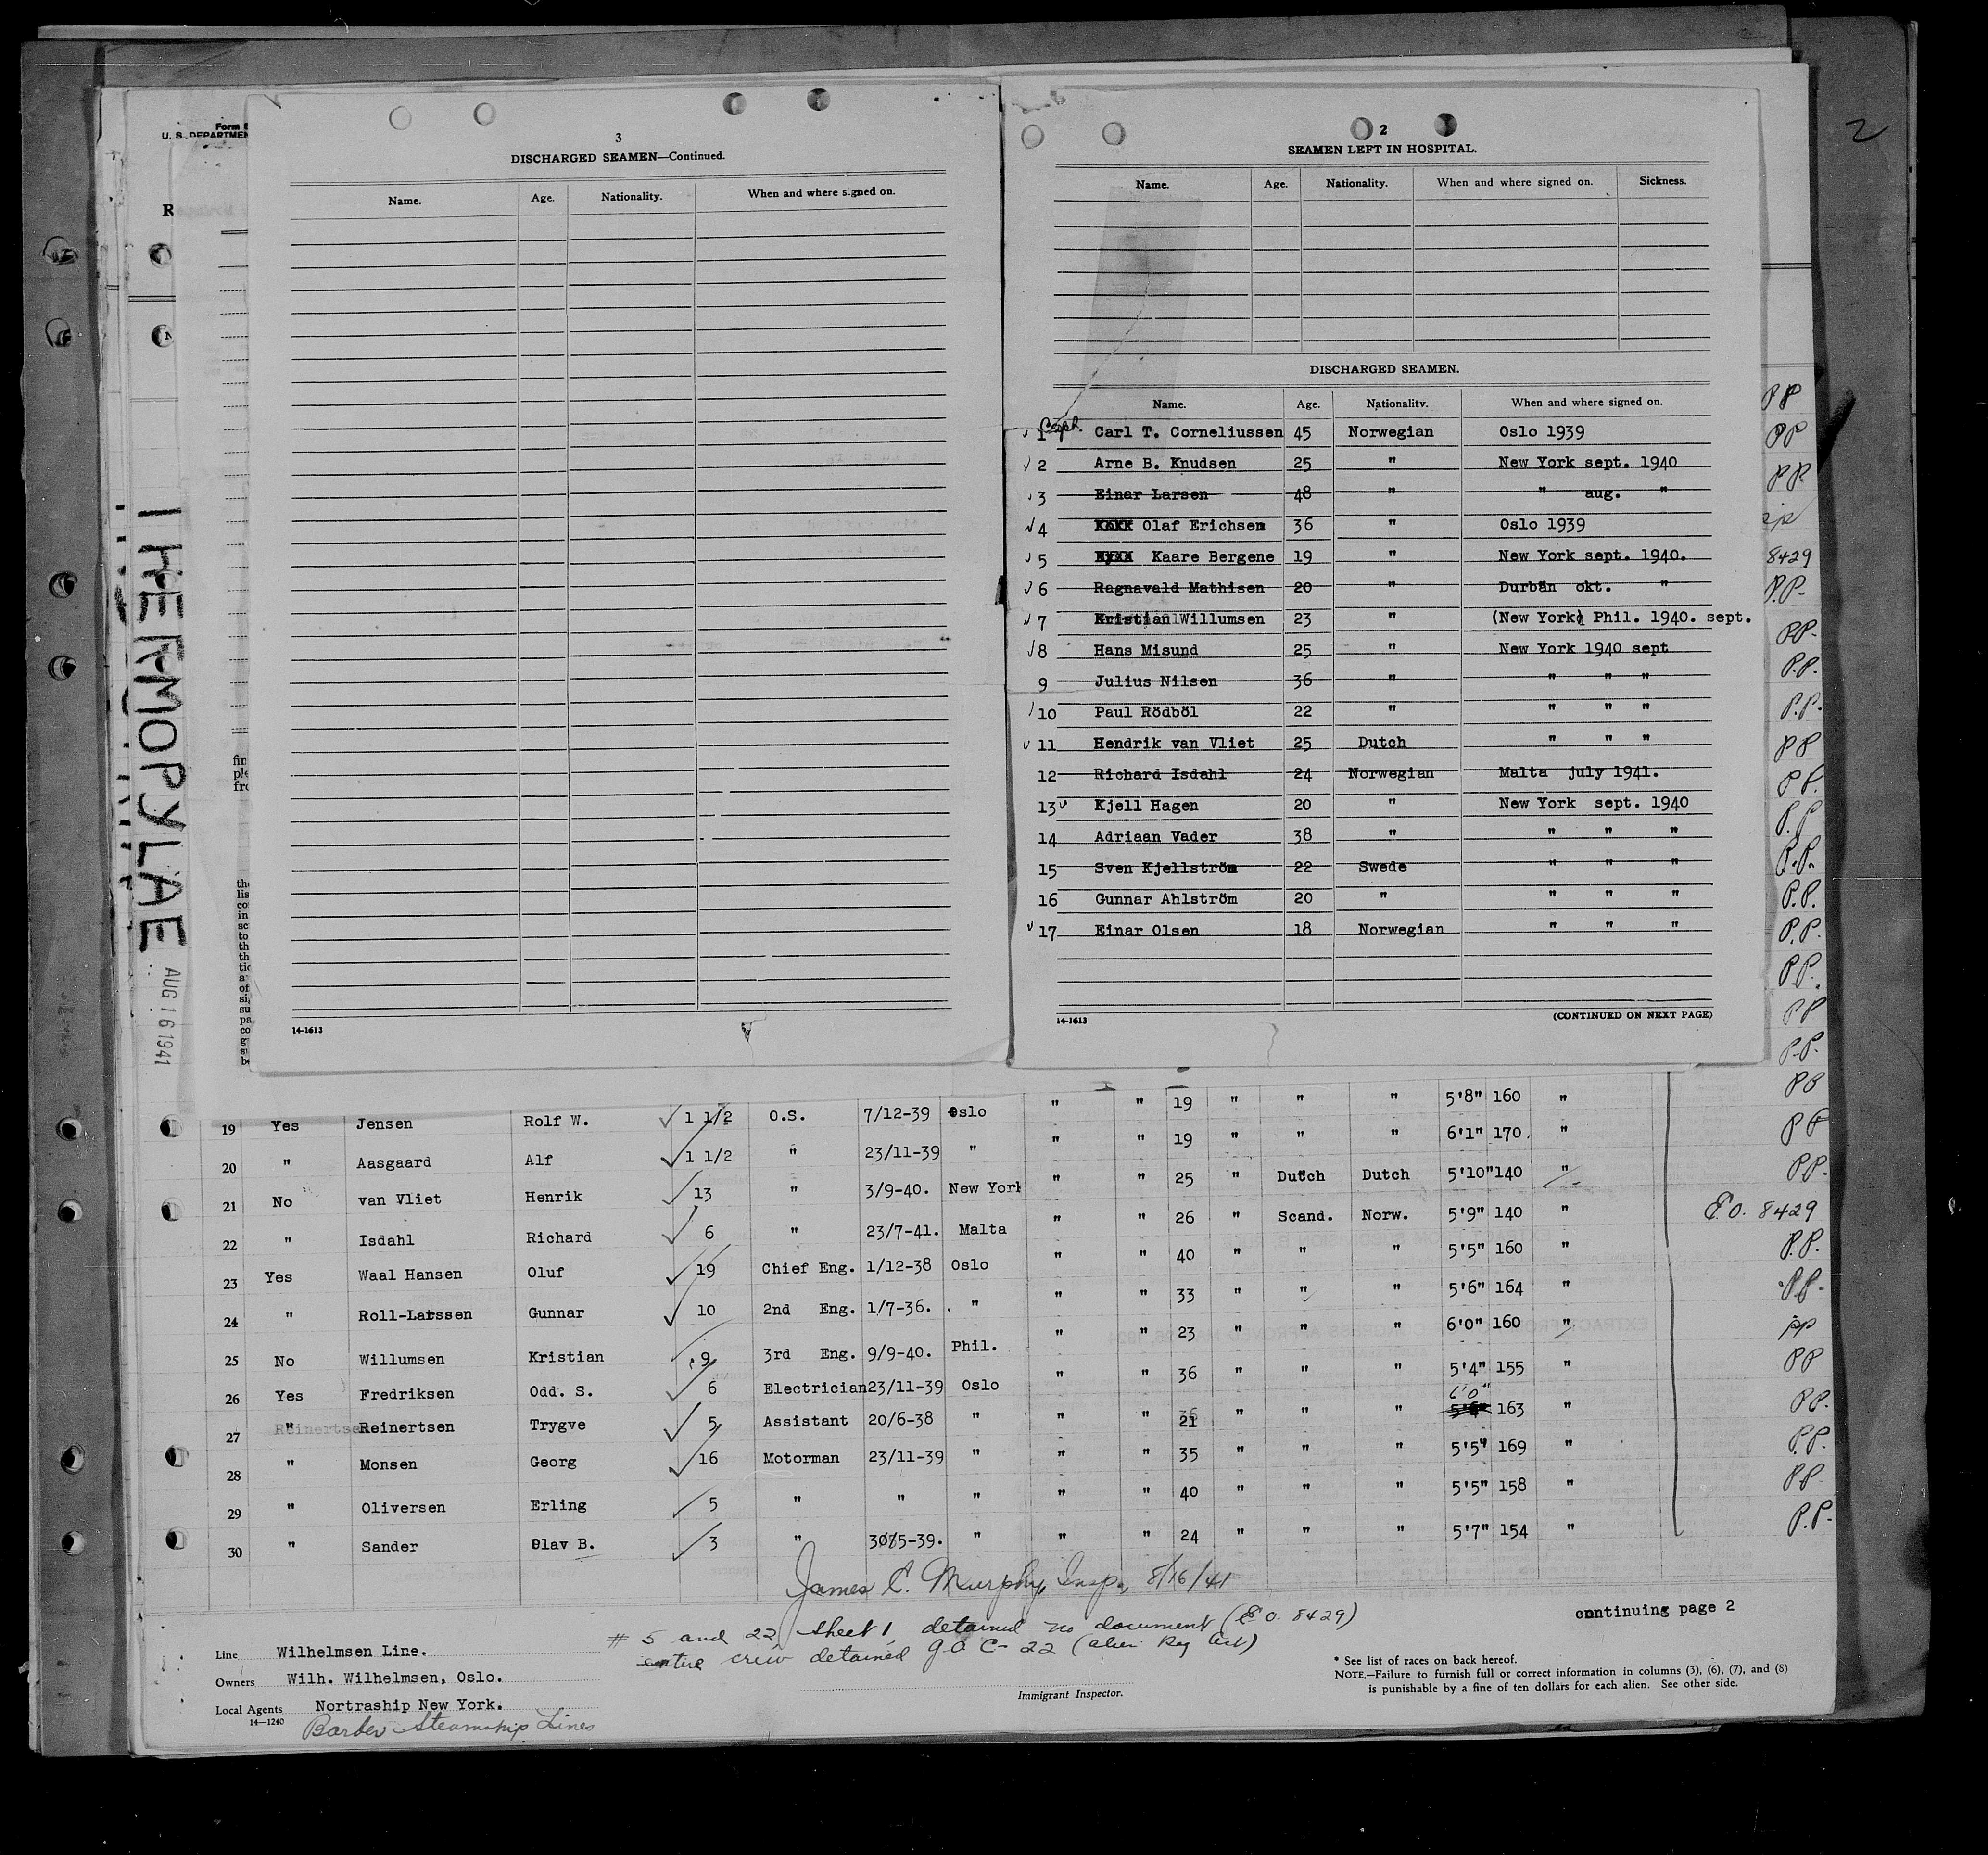 2
Form
U. S. DEPARTMEN
R
THERMOPYLAE
AUG 16 1941
3
DISCHARGED SEAMEN—Continued.
Name. Age. Nationality. When and where signed on.
14-1613
2
SEAMEN LEFT IN HOSPITAL.
Name. Age. Nationality. When and where signed on. Sickness.
DISCHARGED SEAMEN.
Name. Age. Nationality. When and where signed on.
1 Capt. Carl T. Corneliussen 45 Norwegian Oslo 1939
2 Arne B. Knudsen 25 " New York sept. 1940
3 Einar Larsen 48 " " aug. "
4 Olaf Erichsen 36 " Oslo 1939
5 Kaare Bergene 19 " New York sept. 1940.
6 Ragnavald Mathisen 20 " Durbän okt. "
7 Kristian Willumsen 23 " (New York) Phil. 1940. sept.
8 Hans Misund 25 " New York 1940 sept
9 Julius Nilsen 36 " " " "
10 Paul Rödböl 22 " " " "
11 Hendrik van Vliet 25 Dutch " " "
12 Richard Isdahl 24 Norwegian Malta july 1941.
13 Kjell Hagen 20 " New York sept. 1940
14 Adriaan Vader 38 " " " "
15 Sven Kjellström 22 Swede " " "
16 Gunnar Ahlström 20 " " " "
17 Einar Olsen 18 Norwegian " " "
14-1613 (CONTINUED ON NEXT PAGE)
PP
PP
PP.
8429
P.P.
PP.
P.P.
P.P.
PP
PP.
P.P
P.P.
P.P.
P.P.
P.P.
PP
P.P.
PP
19 Yes Jensen Rolf W. 1 1/2 O.S. 7/12-39 Oslo " " 19 " " " 5'8" 160 "
20 " Aasgaard Alf 1 1/2 " 23/11-39 " " " 19 " " " 6'1" 170. " PP
21 No van Vliet Henrik 13 " 3/9-40. New York " " 25 " Dutch Dutch 5'10" 140 " P.P.
22 " Isdahl Richard 6 " 23/7-41. Malta " " 26 " Scand. Norw. 5'9" 140 " E.O. 8429
23 Yes Waal Hansen Oluf 19 Chief Eng. 1/12-38 Oslo " " 40 " " " 5'5" 160 " P.P.
24 " Roll-Larssen Gunnar 10 2nd Eng. 1/7-36. " " " 33 " " " 5'6" 164 " P.P.
25 No Willumsen Kristian 9 3rd Eng. 9/9-40. Phil. " " 23 " " " 6'0" 160 " PP
26 Yes Fredriksen Odd. S. 6 Electrician 23/11-39 Oslo " " 36 " " " 5'4" 155 " PP
27 " Reinertsen Trygve 5 Assistant 20/6-38 " " " 21 " " " 6'0" 163 " PP.
28 " Monsen Georg 16 Motorman 23/11-39 " " " 35 " " " 5'5" 169 " P.P.
29 " Oliversen Erling 5 " " " " " 40 " " " 5'5" 158 " PP
30 " Sander Olav B. 3 " 30/5-39. " " " 24 " " " 5'7" 154 " P.P.
James C. Murphy, Insp., 8/16/41
continuing page 2
# 5 and 22 sheet 1 detained no document (E.O. 8429)
entire crew detained G.O. C-22 (alien Reg Act)
Line Wilhelmsen Line.
Owners Wilh. Wilhelmsen, Oslo.
Local Agents Nortraship New York.
14—1240
Barber Steamship Lines
Immigrant Inspector.
* See list of races on back hereof.
NOTE.—Failure to furnish full or correct information in columns (3), (6), (7), and (8)
is punishable by a fine of ten dollars for each alien. See other side.